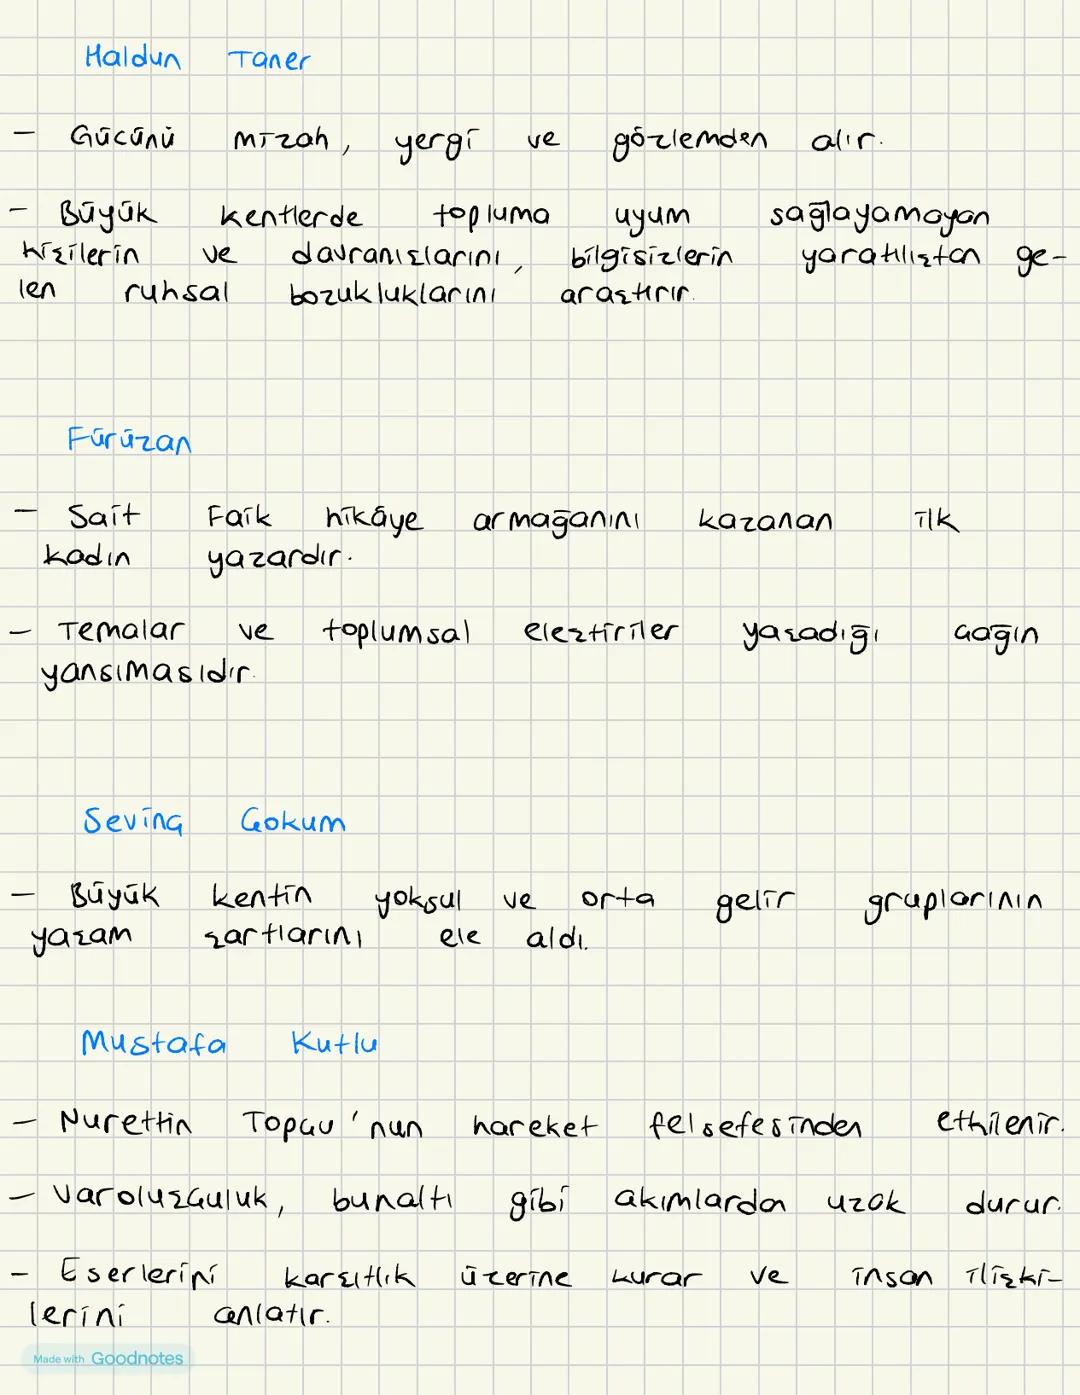 Haldun Taner
- Gücünü mizah, yergi ve gözlemden alır.
- Büyük kentlerde topluma uyum sağlayamayan
kişilerin ve davranışlarını, bilgisizlerin yaratılıştan ge-
len ruhsal bozukluklarını araştırır.
Füruzan
- Sait Faik hikâye armağanını kazanan ilk
kadın yazardır.
- Temalar ve toplumsal eleştiriler yaşadığı çağın
yansımasıdır.
Sevinç Çokum
- Büyük kentin yoksul ve orta gelir gruplarının
yaşam şartlarını ele aldı.
Mustafa Kutlu
- Nurettin Topçu'nun hareket felsefesinden etkilenir.
- Varoluşçuluk, bunaltı gibi akımlardan uzak durur.
- Eserlerini karşıtlık üzerine kurar ve insan ilişki-
lerini anlatır.
Made with Goodnotes